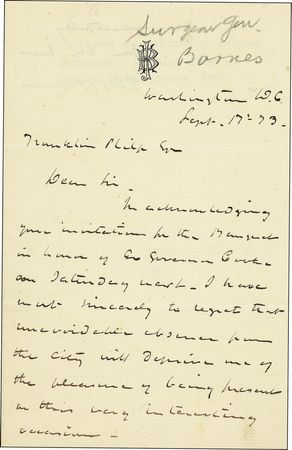 Surgeon Gen.
Barnes
Washington D.C.
Sept. 17th 73.
Franklin Philp Esq
Dear Sir.
In acknowledging
your invitation for the Banquet
in honor of Ex Governor Cooke
on Saturday next. I have
most sincerely to regret that
unavoidable absence from
the city will deprive me of
the pleasure of being present
on this very interesting
occasion -